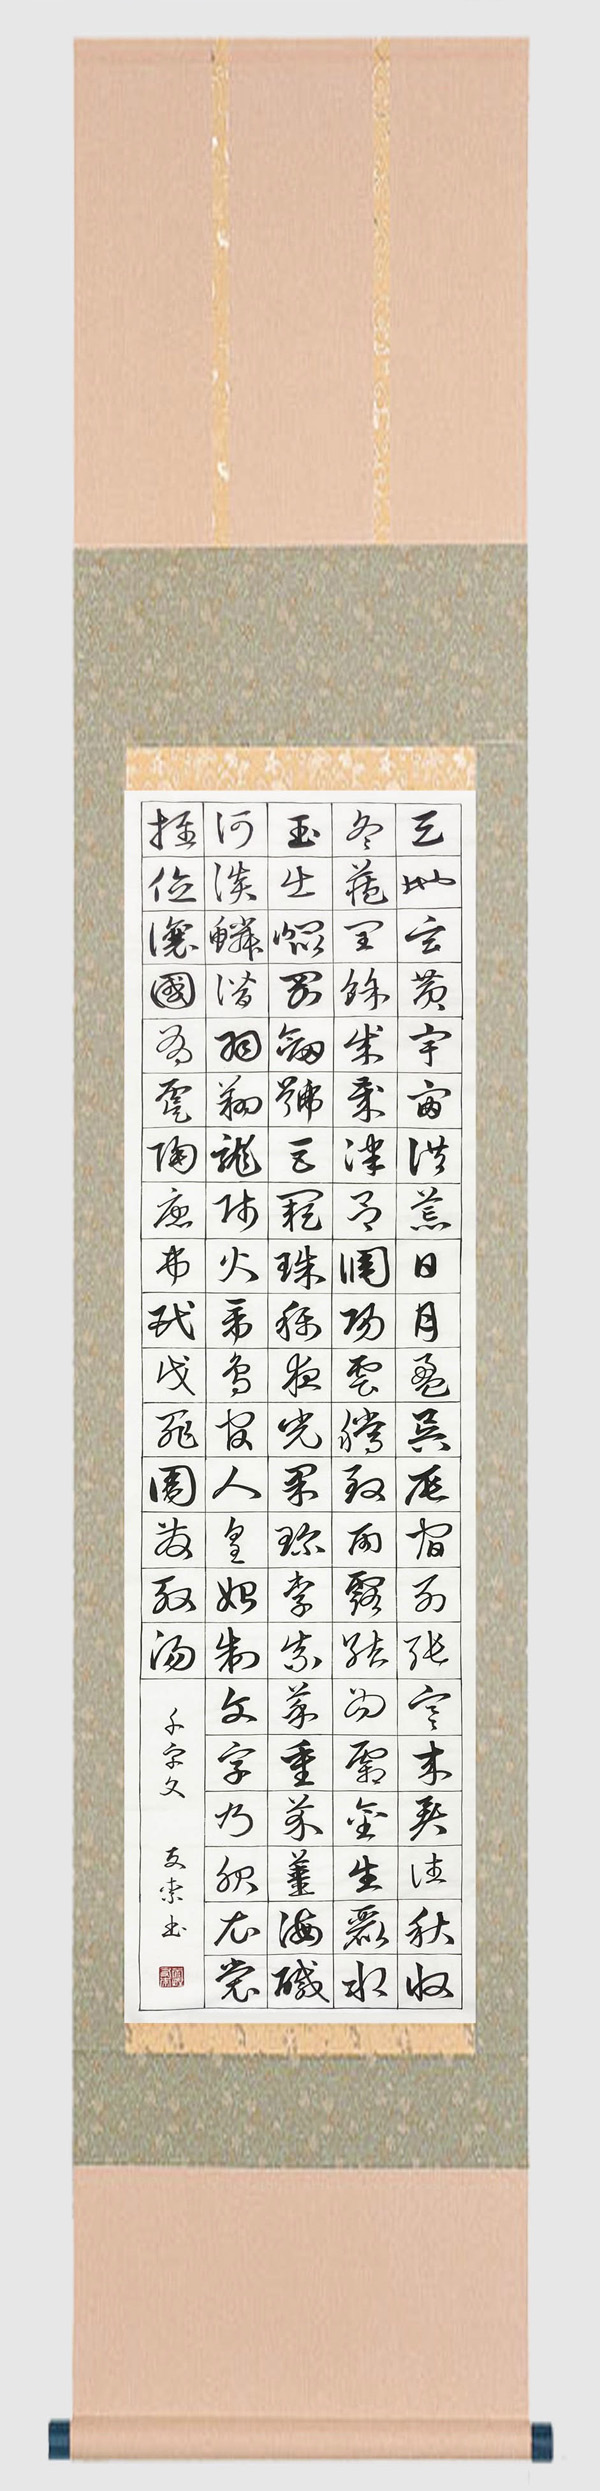 天地玄黃宇宙洪荒日月盈昃辰宿列張寒來暑往秋收
冬藏閏餘成歲律呂調陽雲騰致雨露結為霜金生麗水
玉出崑岡劍號巨闕珠稱夜光果珍李柰菜重芥薑海鹹
河淡鱗潛羽翔龍師火帝鳥官人皇始制文字乃服衣裳
推位讓國有虞陶唐弔民伐罪周發殷湯
千字文 友書